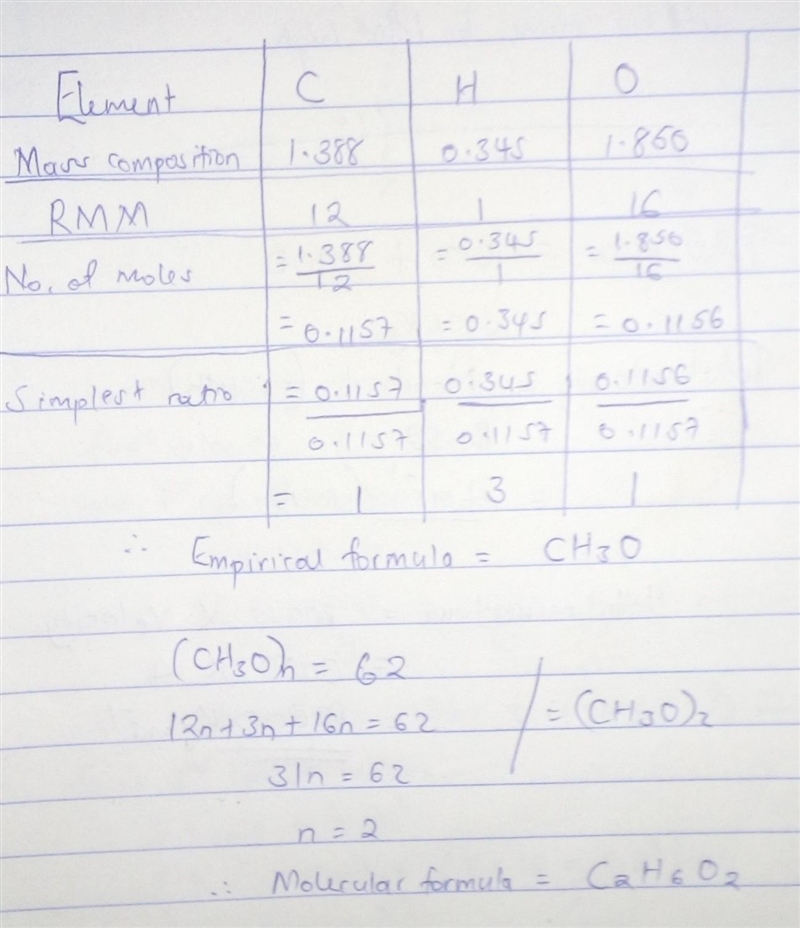 Element C H O
Mass composition 1.388 0.345 1.850
RMM 12 1 16
No. of moles = 1.388/12 = 0.345/1 = 1.850/16
= 0.1157 = 0.345 = 0.1156
Simplest ratio = 0.1157/0.1157 0.345/0.1157 0.1156/0.1157
= 1 3 1
∴ Empirical formula = CH3O
(CH3O)n = 62
12n+3n+16n = 62 / = (CH3O)2
31n = 62
n = 2
∴ Molecular formula = C2H6O2